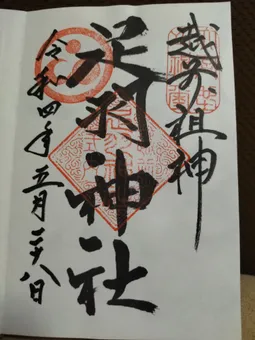 越前祖神
足羽神社
令和四年五月二十八日